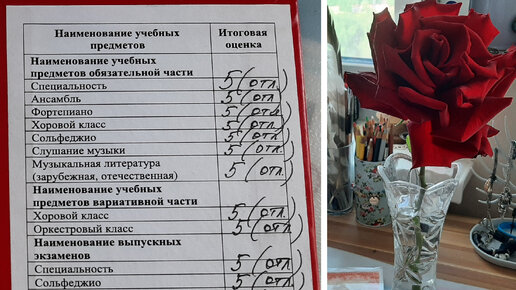 Наименование учебных предметов Итоговая оценка
Наименование учебных
предметов обязательной части
Специальность 5 (отл)
Ансамбль 5 (отл)
Фортепиано 5 (отл)
Хоровой класс 5 (отл)
Сольфеджио 5 (отл)
Слушание музыки 5 (отл)
Музыкальная литература
(зарубежная, отечественная) 5 (отл)
Наименование учебных
предметов вариативной части
Хоровой класс 5 (отл)
Оркестровый класс 5 (отл)
Наименование выпускных
экзаменов
Специальность 5 (отл)
Сольфеджио 5 (отл)